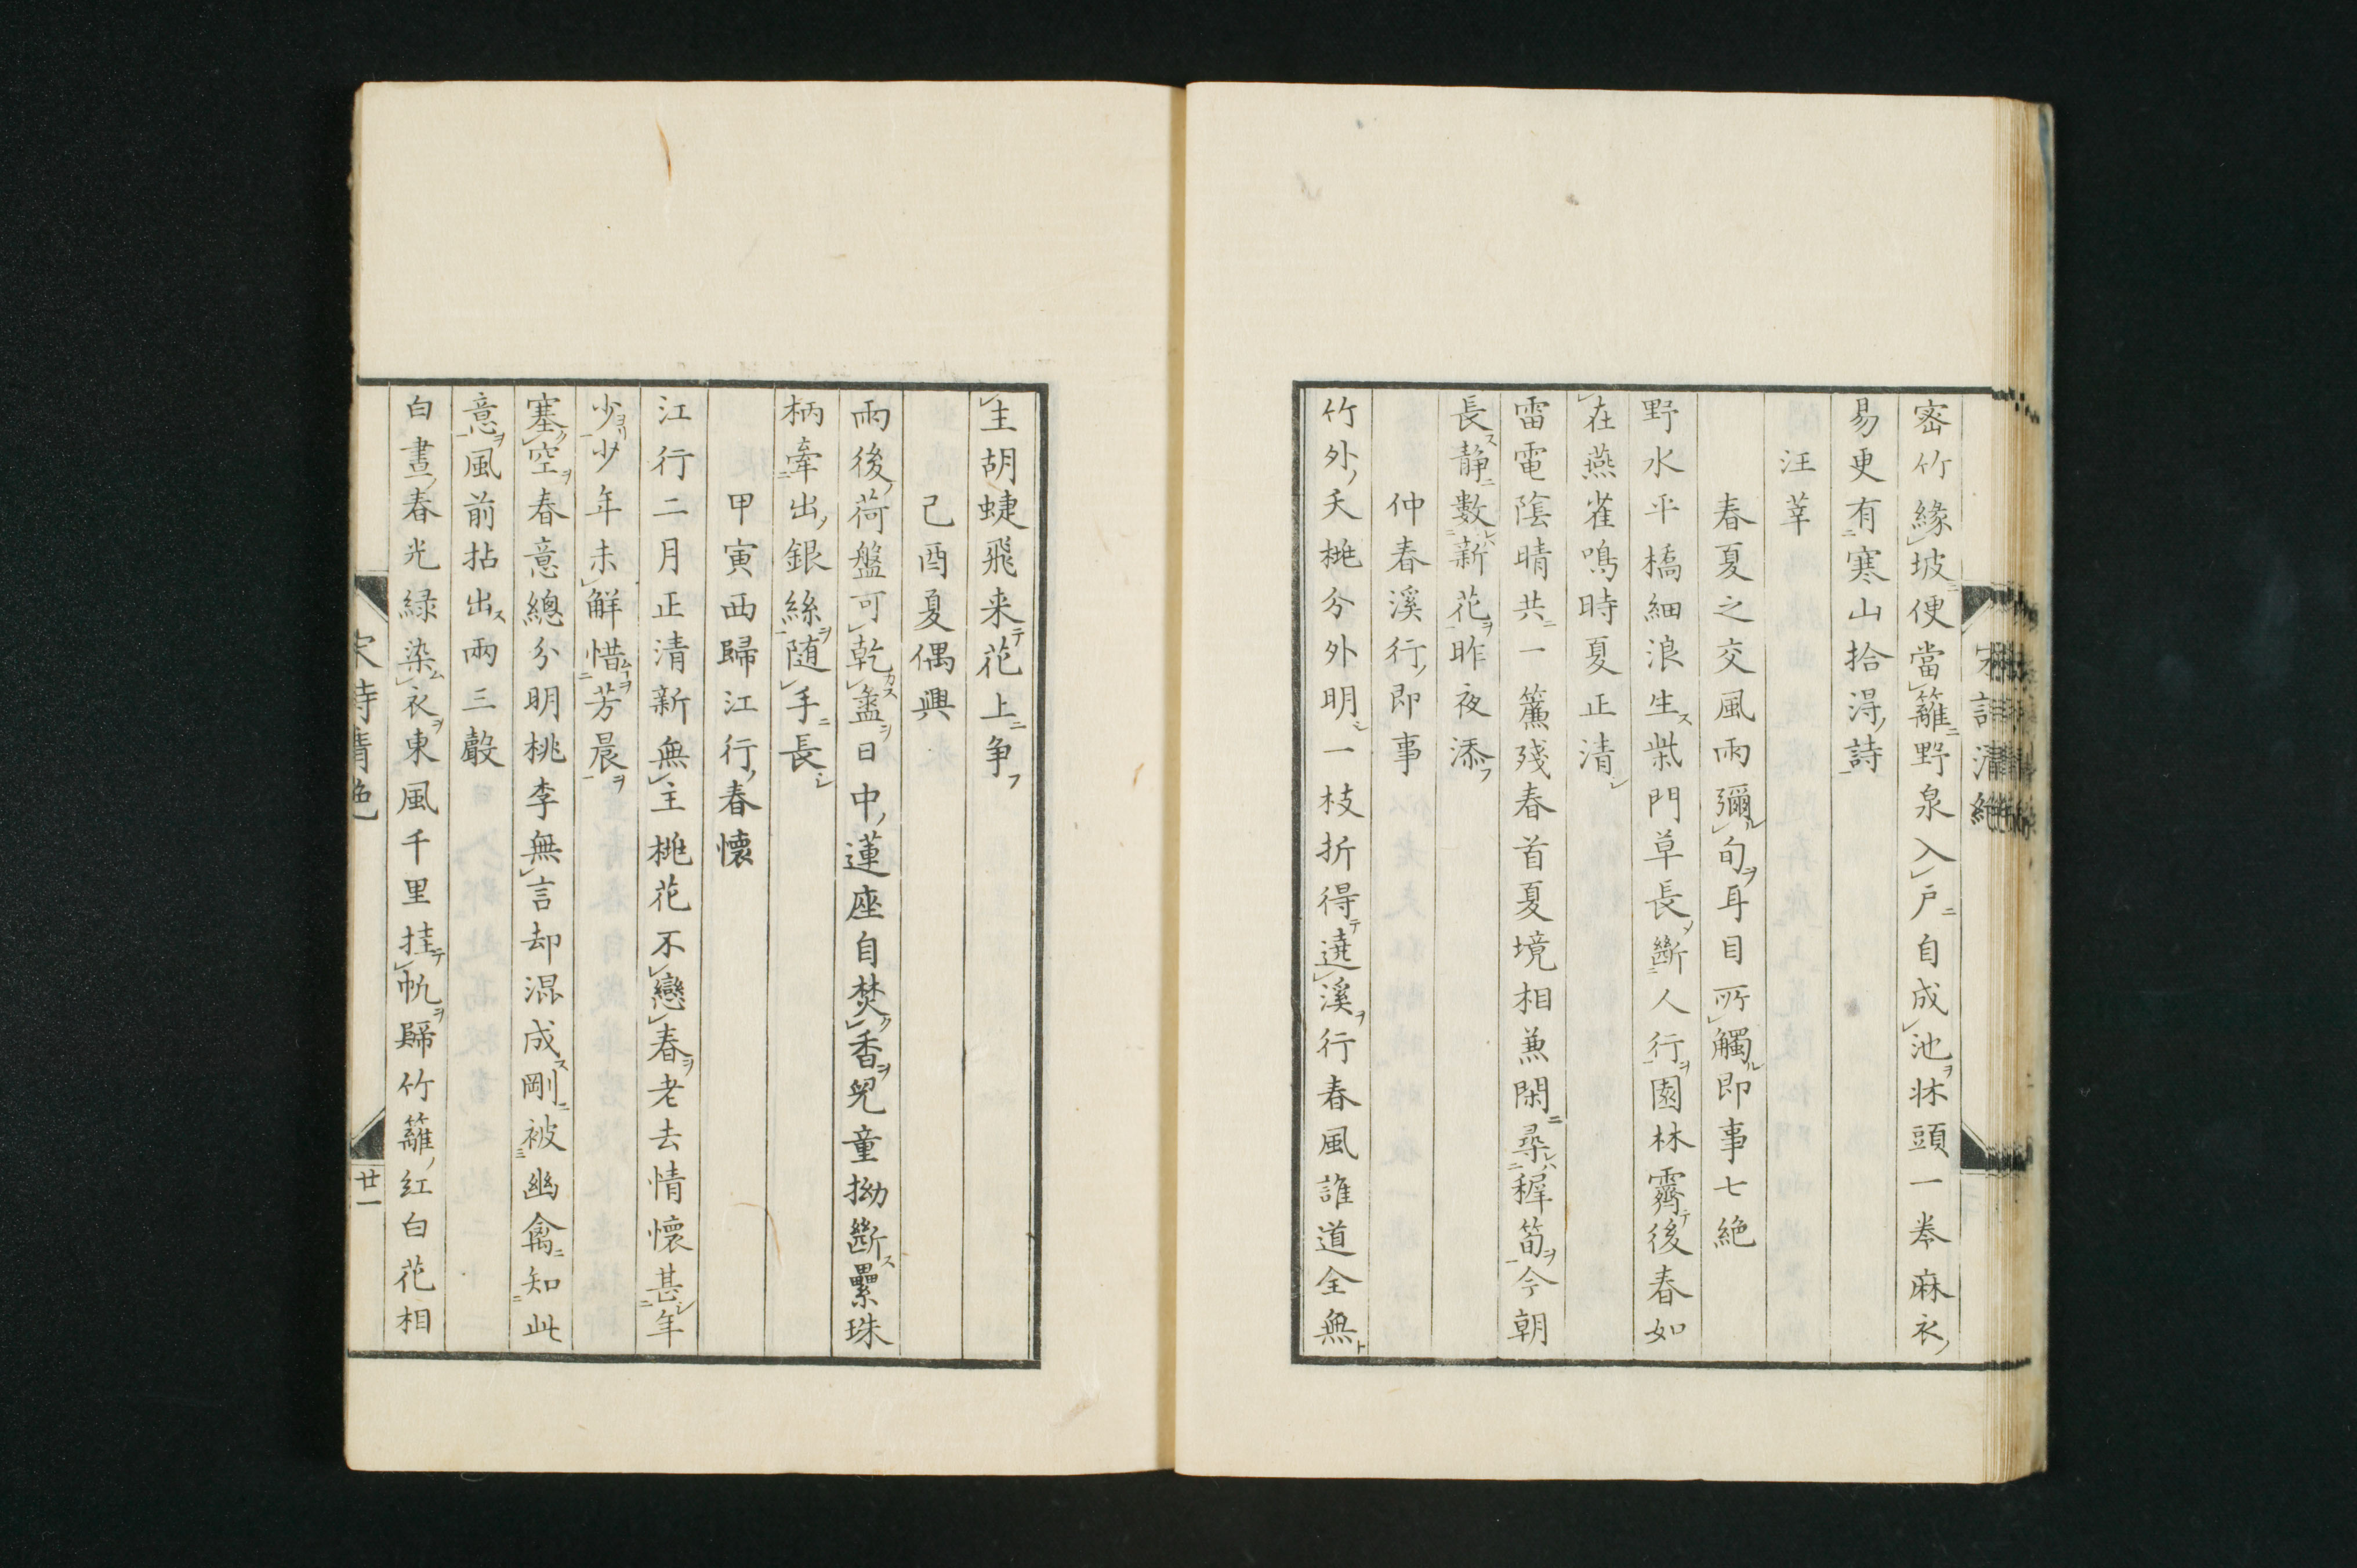 密竹緣坡便當籬野泉入戸自成池牀頭一巻麻衣
易更有寒山拾得詩
汪莘
春夏之交風雨彌旬耳目所觸即事七絶
野水平橋細浪生柴門草長斷人行園林霽後春如
在燕雀鳴時夏正清
雷電陰晴共一簾殘春首夏境相兼閑尋穉筍今朝
長静數新花昨夜添
仲春溪行即事
竹外夭桃分外明一枝折得遶溪行春風誰道全無
主胡蜨飛来花上争
己酉夏偶興
雨後荷盤可乾盞日中蓮座自焚香兒童拗斷纍珠
柄牽出銀絲随手長
甲寅西歸江行春懷
江行二月正清新無主桃花不戀春老去情懷甚年
少少年未解惜芳晨
塞空春意總分明桃李無言却混成剛被幽禽知此
意風前拈出兩三聲
白晝春光緑染衣東風千里挂帆歸竹籬紅白花相
宋詩清絶
廿一